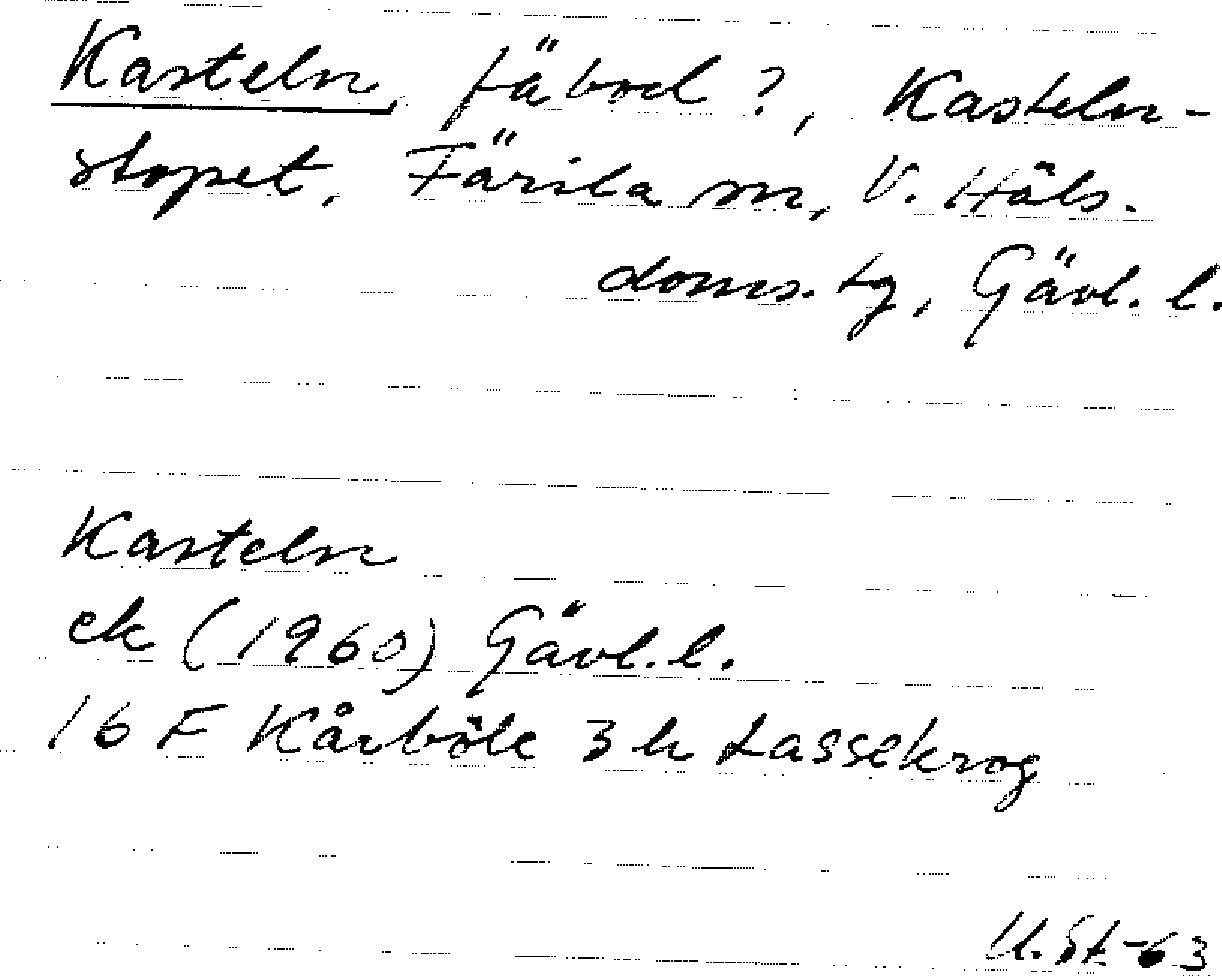 Kasteln, fäbod ?, Kasteln-
stopet, Färila sn, V. Häls.
doms. tg, Gävl. l.
Kasteln
ek (1960) Gävl. l.
16 F Kårböle 3 h Lassekrog
U. St-63